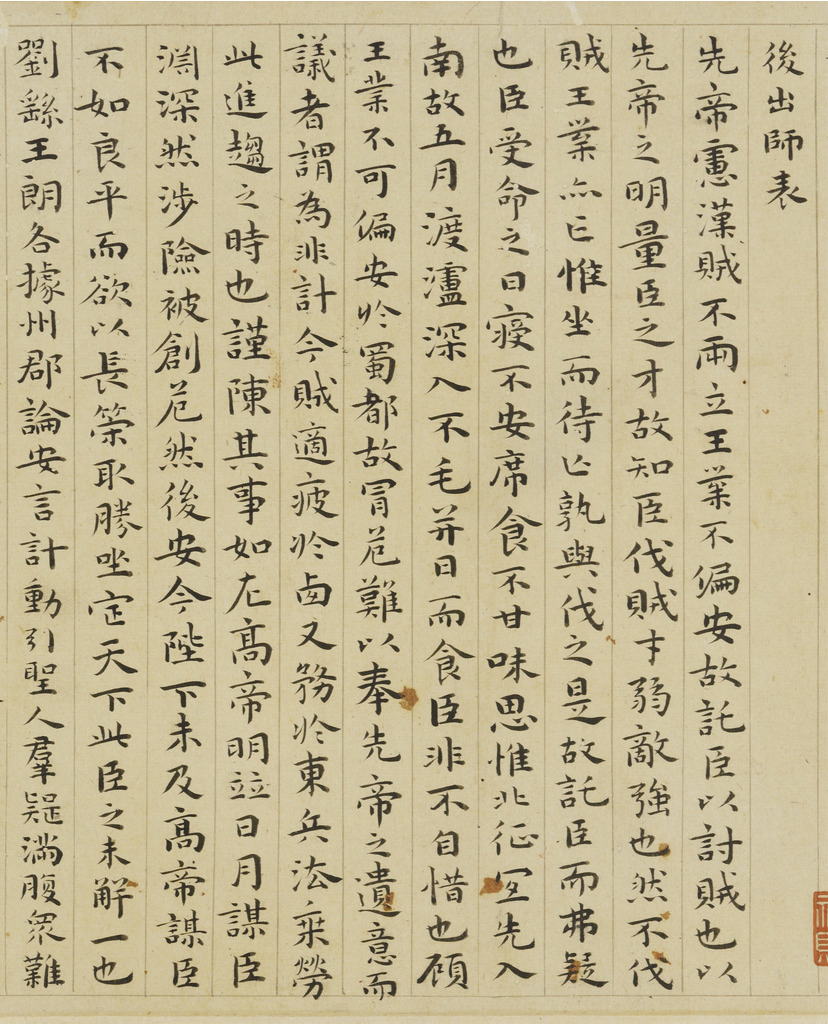 後出師表
先帝慮漢賊不兩立王業不偏安故託臣以討賊也以
先帝之明量臣之才故知臣伐賊才弱敵強也然不伐
賊王業亦亡惟坐而待亡孰與伐之是故託臣而弗疑
也臣受命之日寢不安席食不甘味思惟北征宜先入
南故五月渡瀘深入不毛并日而食臣非不自惜也顧
王業不可偏安於蜀都故冒危難以奉先帝之遺意而
議者謂為非計今賊適疲於西又務於東兵法乗勞
此進趨之時也謹陳其事如左高帝明並日月謀臣
淵深然涉險被創危然後安今陛下未及高帝謀臣
不如良平而欲以長策取勝坐定天下此臣之未解一也
劉繇王朗各據州郡論安言計動引聖人羣疑滿腹衆難